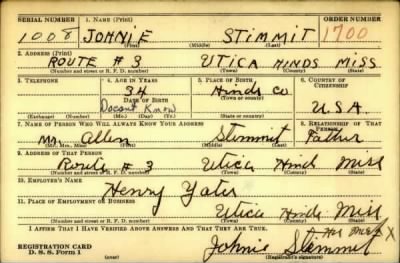 SERIAL NUMBER 1. NAME (Print) ORDER NUMBER
1008 JOHNIE STIMMIT 1700
(First) (Middle) (Last)
2. ADDRESS (Print)
ROUTE # 3 UTICA HINDS MISS
(Number and street or R. F. D. number) (Town) (County) (State)
3. TELEPHONE 4. AGE IN YEARS 5. PLACE OF BIRTH 6. COUNTRY OF CITIZENSHIP
34 Hinds Co
DATE OF BIRTH (Town or county)
Doesnt Know U.S.A.
(Exchange) (Number) (Mo.) (Day) (Yr.) (State or country)
7. NAME OF PERSON WHO WILL ALWAYS KNOW YOUR ADDRESS 8. RELATIONSHIP OF THAT PERSON
Mr. Allen Stemmit Father
(Mr., Mrs., Miss) (First) (Middle) (Last)
9. ADDRESS OF THAT PERSON
Route # 3 Utica Hind Miss
(Number and street or R. F. D. number) (Town) (County) (State)
10. EMPLOYER'S NAME
Henry Yates
11. PLACE OF EMPLOYMENT OR BUSINESS
Utica Hinds Miss
(Number and street or R. F. D. number) (Town) (County) (State)
I AFFIRM THAT I HAVE VERIFIED ABOVE ANSWERS AND THAT THEY ARE TRUE.
his mark X
REGISTRATION CARD Johnie Stemmit
D. S. S. Form 1 (Registrant's signature)